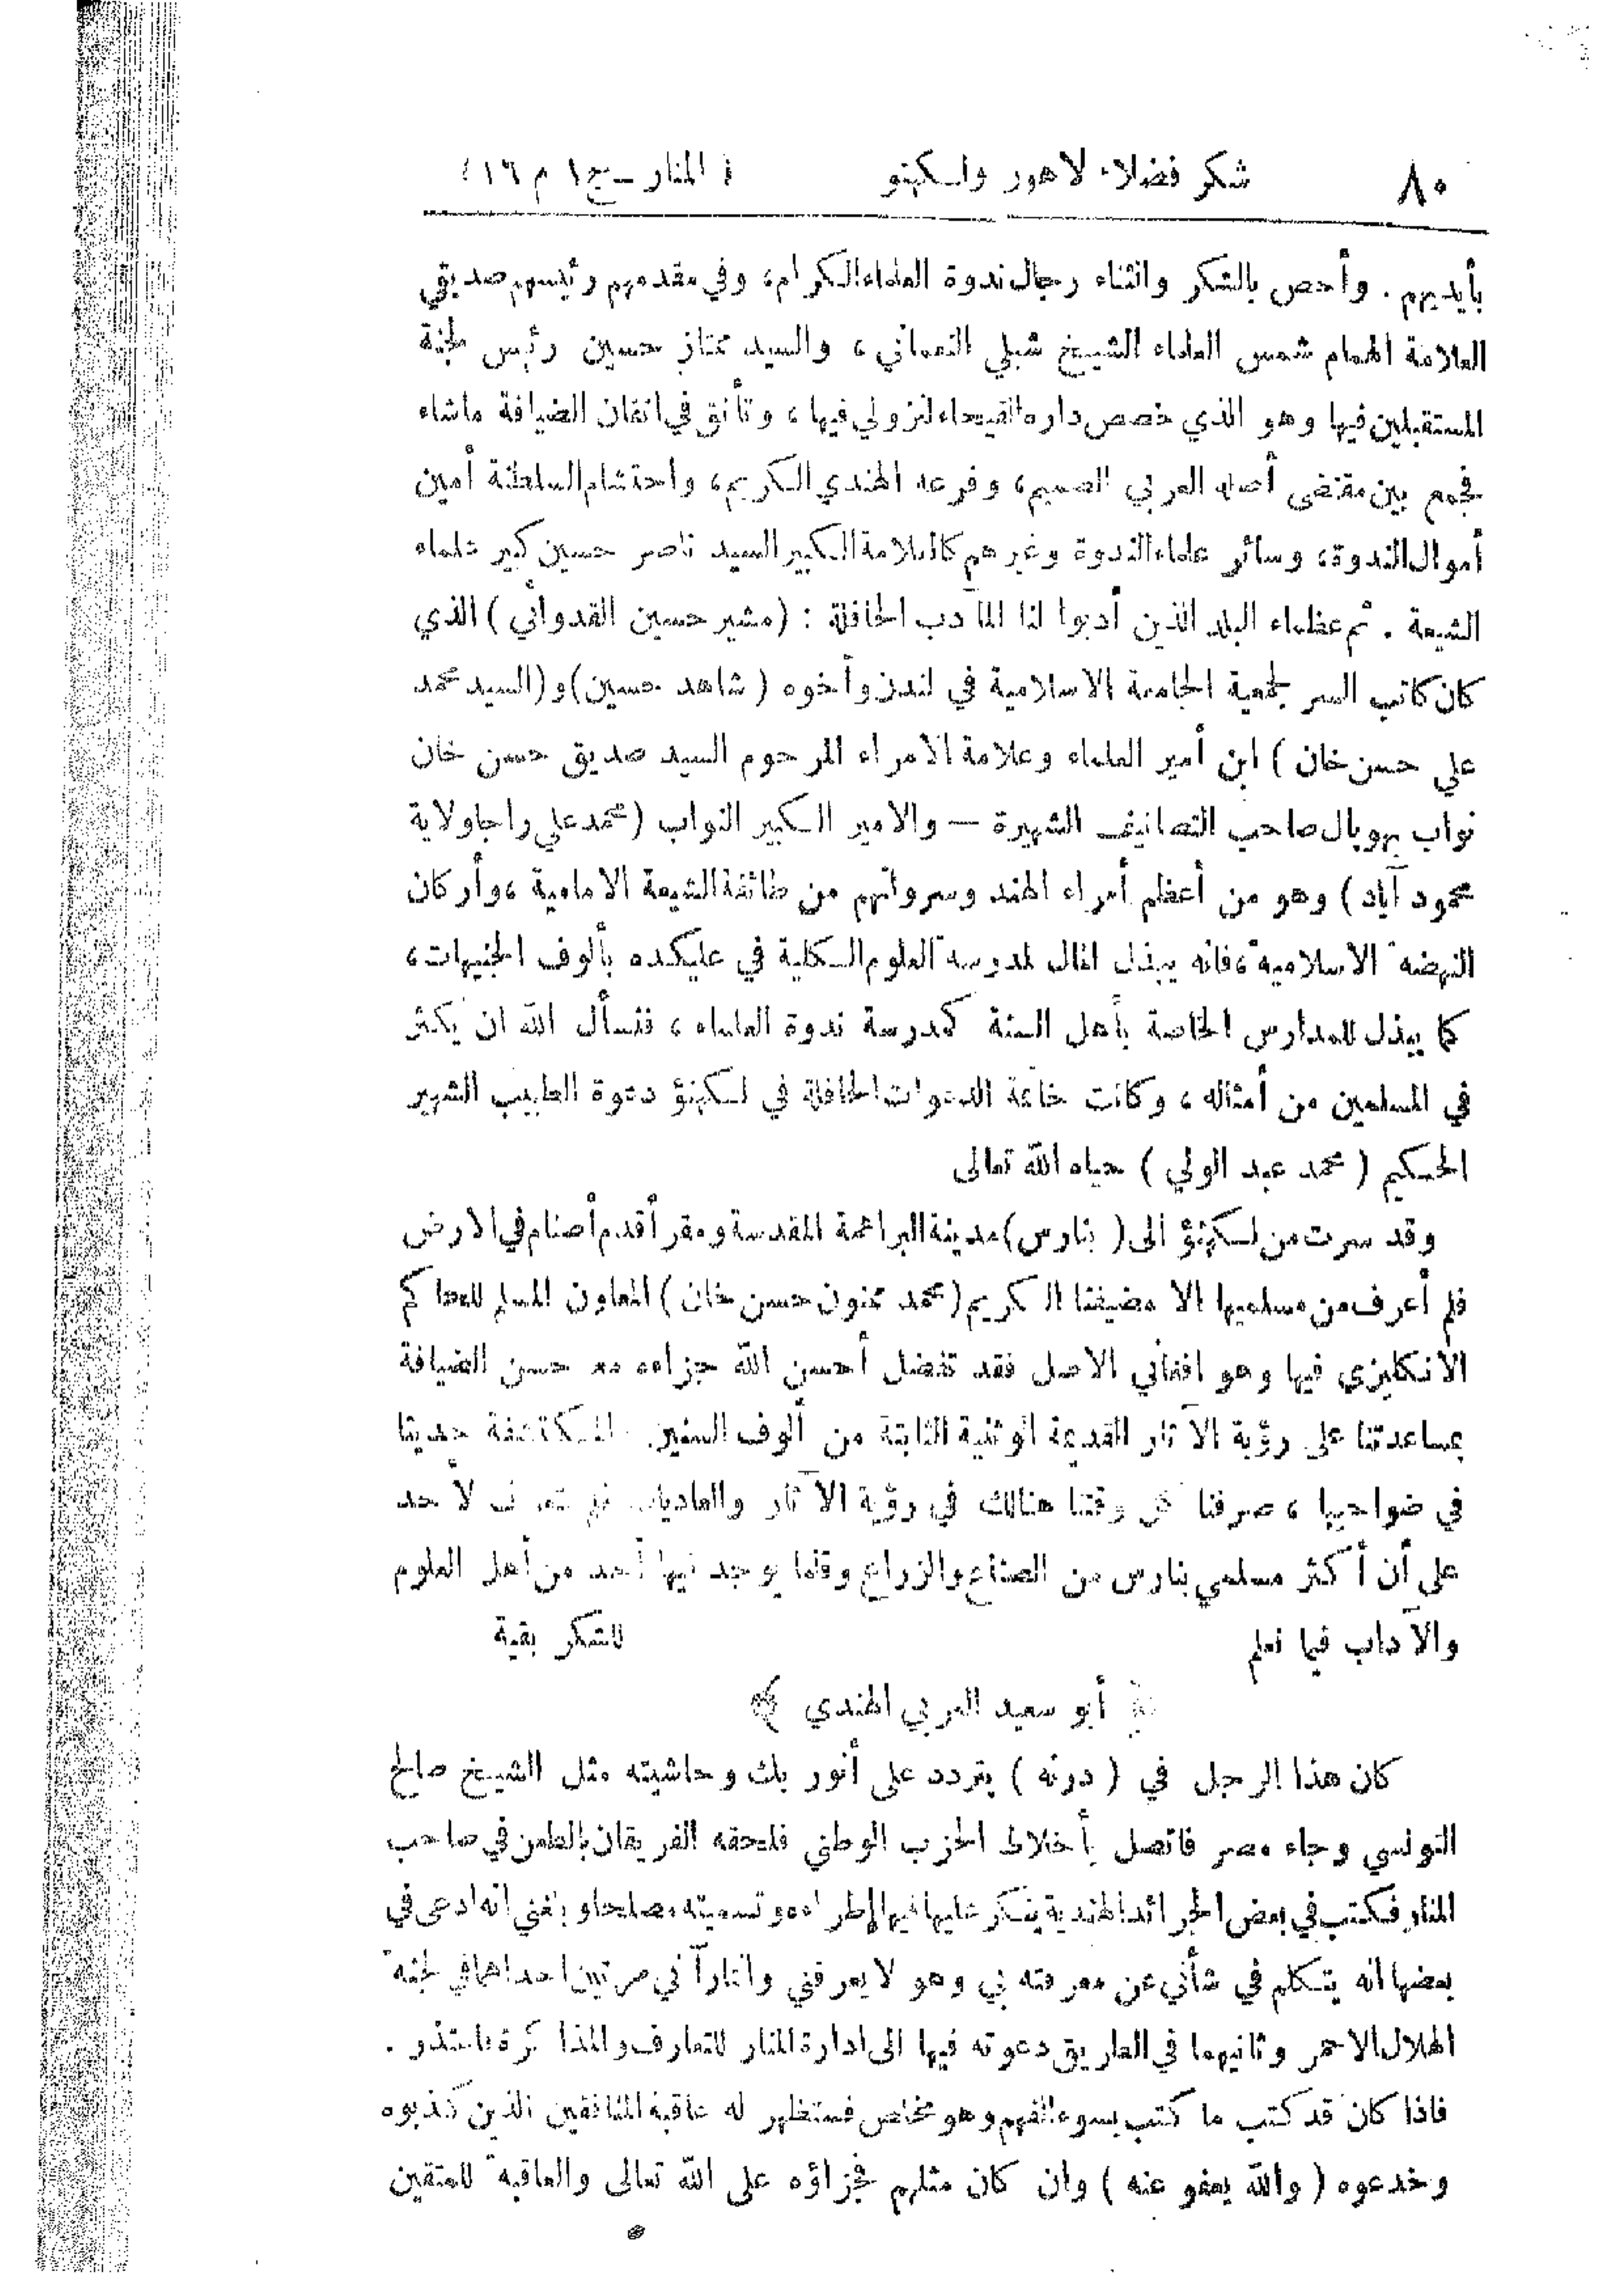 ٨٠ شكر فضلاء لاهور ولسكهنو ( المنار ـ ج ١ م ١٦ )
بأيديهم . وأخص بالشكر والثناء رجال ندوة العلماء الكرام، وفي مقدمهم رئيسهم صديقي
العلامة الهمام شمس العلماء الشيخ شبلي النعماني، والسيد ممتاز حسين رئيس لجنة
المستقبلين فيها وهو الذي خصص داره الفيحاء لنزولي فيها، وتأنق في اتقان الضيافة ماشاء
فجمع بين مقتضى أصله العربي الصميم، وفرعه الهندي الكريم، واحتشام السلطنة أمين
أموال الندوة، وسائر علماء الندوة وغيرهم كالعلامة الكبير السيد ناصر حسين كبير علماء
الشيعة . ثم عظماء البلد الذين أدبوا لنا المآدب الحافلة : (مشير حسين القدواني) الذي
كان كاتب السر لجمعية الجامعة الاسلامية في لندن وأخوه (شاهد حسين) و(السيد محمد
علي حسن خان) ابن أمير العلماء وعلامة الامراء المرحوم السيد صديق حسن خان
نواب بهوبال صاحب التصانيف الشهيرة — والامير الكبير النواب (محمد علي راجا ولاية
محمود آباد) وهو من أعظم أمراء الهند وسرواتهم من طائفة الشيعة الامامية، وأركان
النهضة الاسلامية، فانه يبذل المال لمدرسة العلوم الكلية في عليكده بألوف الجنيهات،
كما يبذل للمدارس الخاصة بأهل السنة كمدرسة ندوة العلماء، فنسأل الله ان يكثر
في المسلمين من أمثاله، وكانت خاتمة الدعوات الحافلة في لكهنؤ دعوة الطبيب الشهير
الحكيم (محمد عبد الولي) حياه الله تعالى
وقد سرت من لكهنؤ الى (بنارس) مدينة البراهمة المقدسة ومقر أقدم أصنام في الارض
فلم أعرف من مسلميها الا مضيفنا الكريم (محمد ممنون حسن خان) المعاون المسلم للحاكم
الانكليزي فيها وهو افغاني الاصل فقد تفضل أحسن الله جزاءه مع حسن الضيافة
بمساعدتنا على رؤية الآثار القديمة الوثنية الثابتة من ألوف السنين المكتشفة حديثا
في ضواحيها، صرفنا كل وقتنا هنالك في رؤية الآثار والعاديات فلم نتعرف لأحد
على أن أكثر مسلمي بنارس من الصناع والزراع وقلما يوجد فيها أحد من أهل العلوم
والآداب فيما نعلم للشكر بقية
﴿ أبو سعيد العربي الهندي ﴾
كان هذا الرجل في (درنه) يتردد على أنور بك وحاشيته مثل الشيخ صالح
التونسي وجاء مصر فاتصل بأخلاط الحزب الوطني فلحقه الفريقان بالطعن في صاحب
المنار فكتب في بعض الجرائد الهندية ينكر عليها فيها إطراءه وتسميته مصلحا وبلغني انه ادعى في
بعضها انه يتكلم في شأني عن معرفته بي وهو لا يعرفني وانما رآني مرتين احداهما في لجنة
الهلال الاحمر وثانيهما في الطريق دعوته فيها الى ادارة المنار للتعارف والمذاكرة فاعتذر .
فاذا كان قد كتب ما كتب بسوء الفهم وهو مخلص فستظهر له عاقبة المنافقين الذين كذبوه
وخدعوه (والله يعفو عنه) وان كان مثلهم فجزاؤه على الله تعالى والعاقبة للمتقين